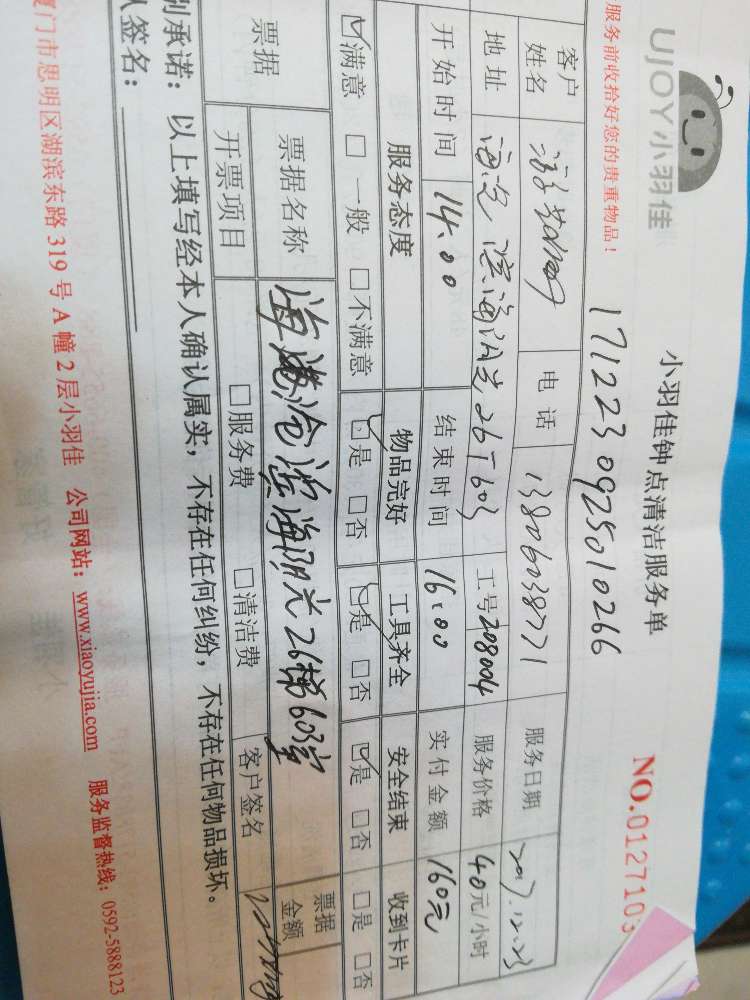 UJOY小羽佳
小羽佳钟点清洁服务单
NO.0127103
服务前收拾好您的贵重物品!
1712230925010266
客户姓名 电话 13806038771 服务日期 2017.12.23
地址 26T603 工号 208004 服务价格 40元/小时
开始时间 14:00 结束时间 16:00 实付金额 160元
服务态度 物品完好 工具齐全 安全结束 收到卡片
☑满意 □一般 □不满意 ☑是 □否 ☑是 □否 ☑是 □否 □是 □否
票据 票据名称 海沧滨海阳光26梯603室 票据金额
开票项目 □服务费 □清洁费 客户签名
别承诺:以上填写经本人确认属实,不存在任何纠纷,不存在任何物品损坏。
人签名:
厦门市思明区湖滨东路319号A幢2层小羽佳 公司网站:www.xiaoyujia.com 服务监督热线:0592-5888123